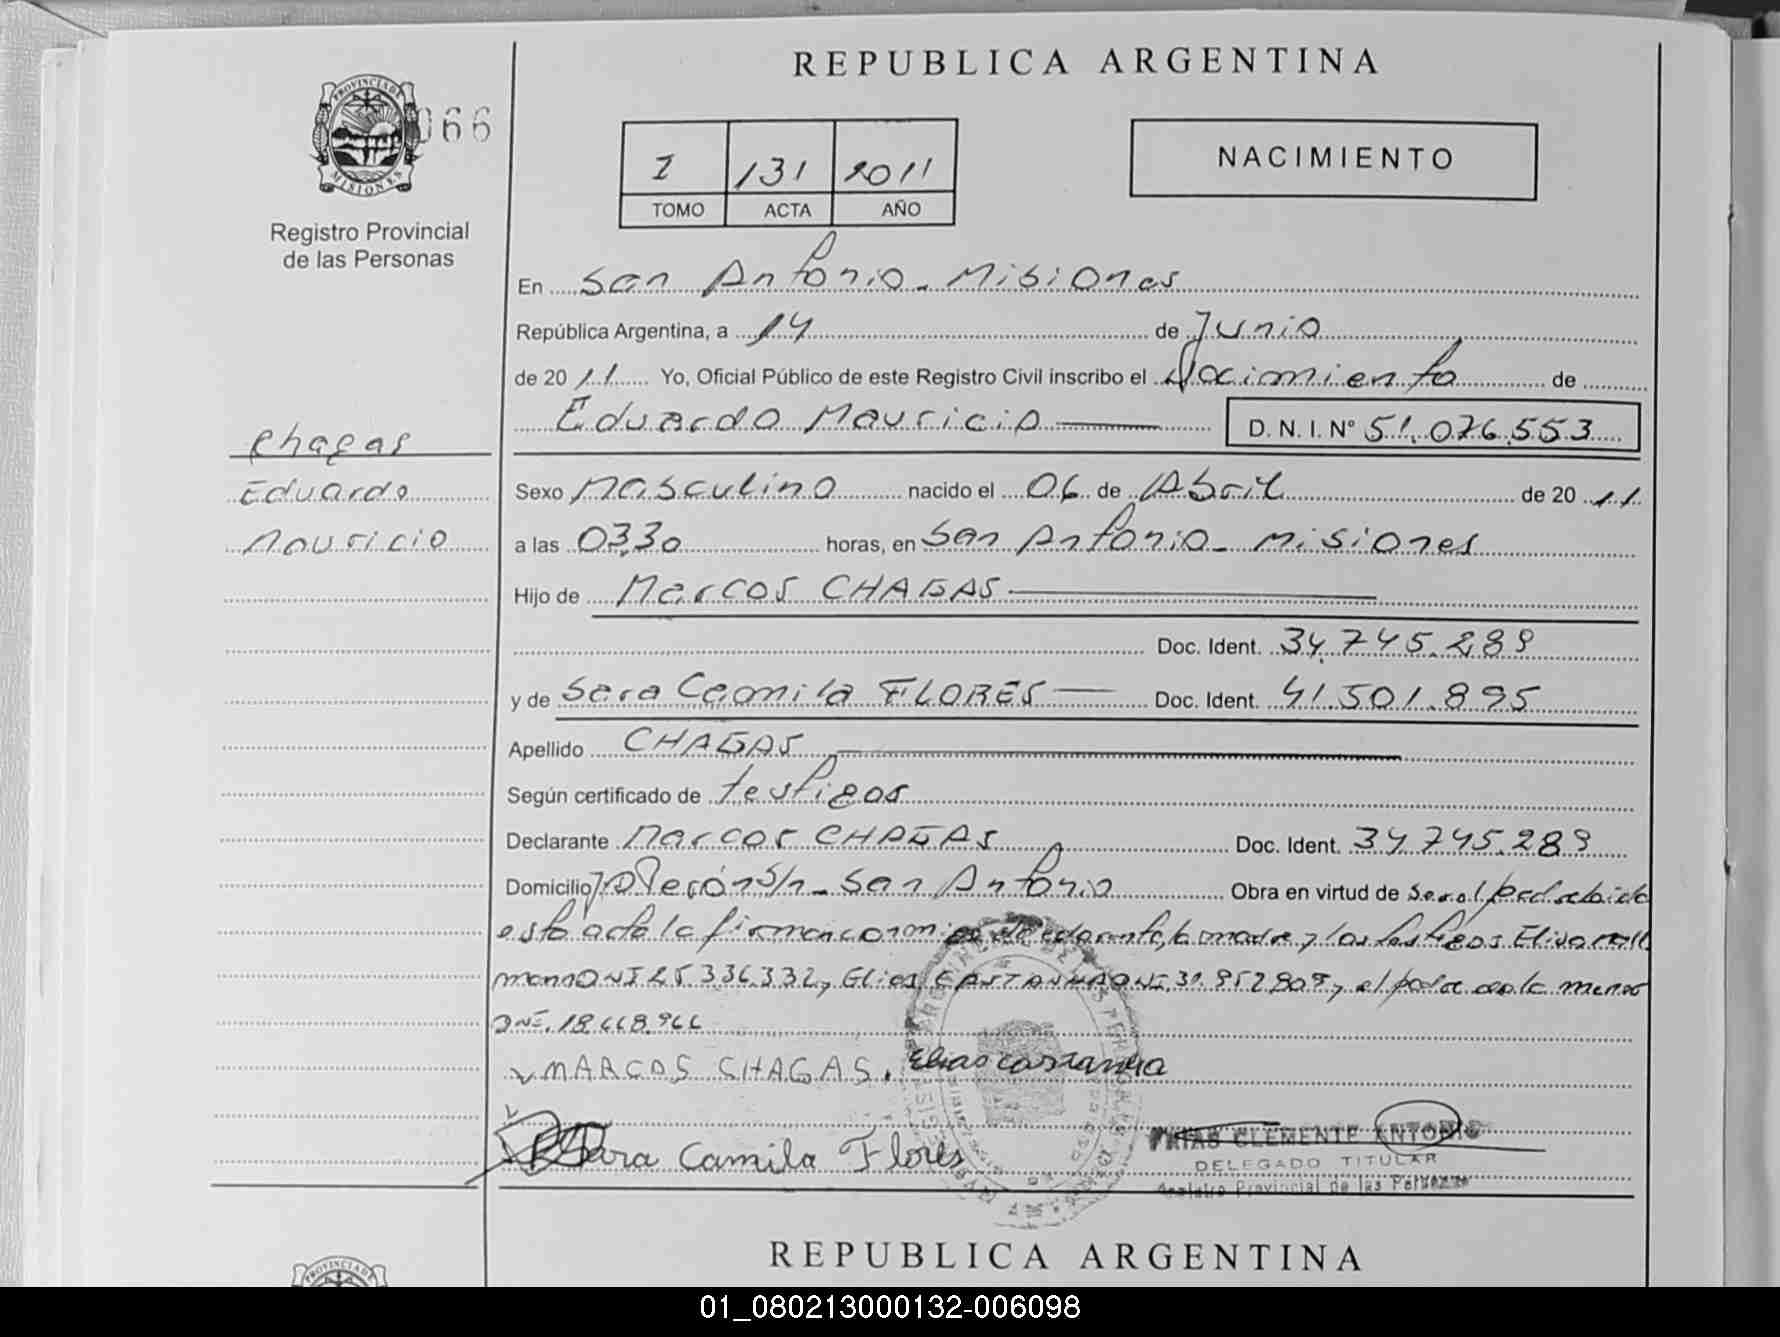 REPUBLICA ARGENTINA
PROVINCIA DE MISIONES
066
Registro Provincial
de las Personas
I 131 2011
TOMO ACTA AÑO
NACIMIENTO
En San Antonio - Misiones
República Argentina, a 14 de Junio
de 2011 Yo, Oficial Público de este Registro Civil inscribo el Nacimiento de
Eduardo Mauricio D. N. I. N° 51.076.553
Chagas
Eduardo
Mauricio
Sexo Masculino nacido el 06 de Abril de 2011
a las 03,30 horas, en San Antonio - Misiones
Hijo de Marcos CHAGAS
Doc. Ident. 34.745.289
y de Sara Camila FLORES Doc. Ident. 41.501.895
Apellido CHAGAS
Según certificado de testigos
Declarante Marcos CHAGAS Doc. Ident. 34.745.289
Domicilio Perón S/n - San Antonio Obra en virtud de
esta acta la firman conmigo el declarante, la madre y los testigos Elisa
DNI 25.336.332, y Elias CASTANHA DNI. 31.952.809, y el padre de la menor
DNI. 18.668.966
MARCOS CHAGAS. Elias castanha
Sara Camila Flores
FRIAS CLEMENTE ANTONIO
DELEGADO TITULAR
Registro Provincial de las Personas
REPUBLICA ARGENTINA
PROVINCIA DE
01_080213000132-006098